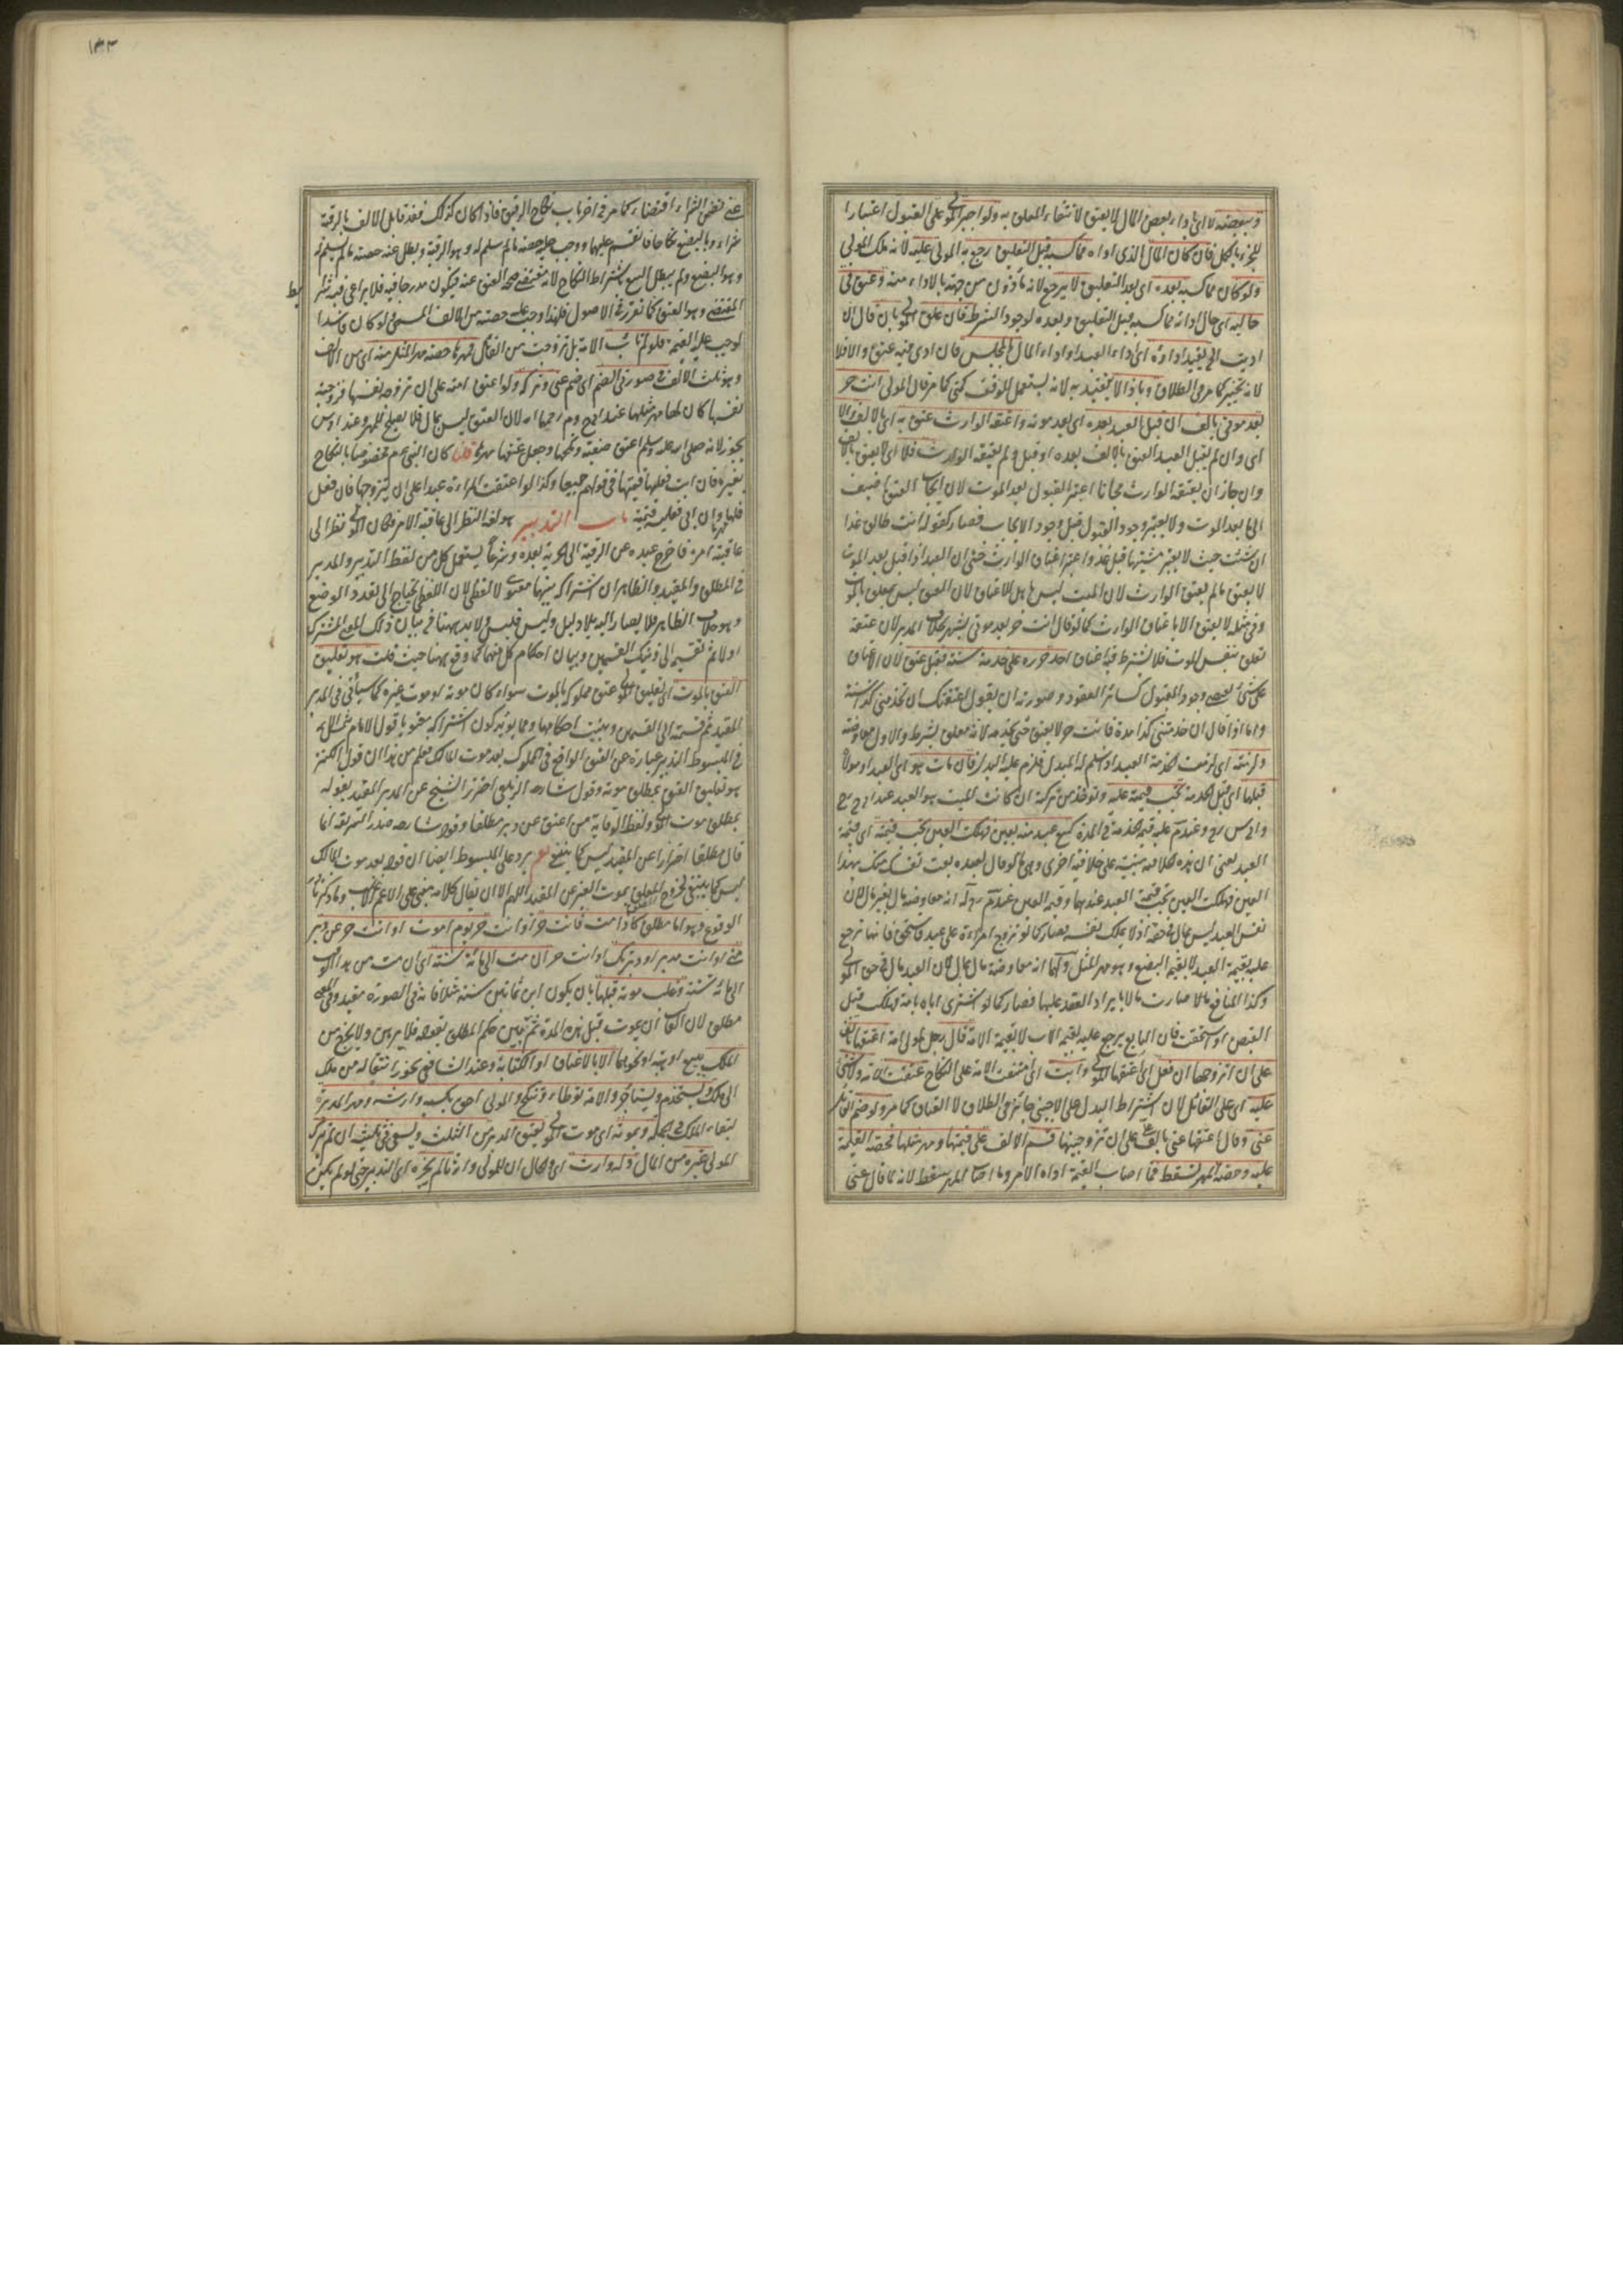 وببعضه لا اي باداء بعض المال لا يعتق لانتفاء المعلق به ولو اجبر المولى على القبول اعتبارا
للجزء بالكل فان كان المال الذي اداه مما كسبه قبل التعليق رجع به المولى عليه لانه ملك المولى
ولو كان مما كسبه بعده اي بعد التعليق لا يرجع لانه ماذون من جهته بالاداء منه وعتق في
حاليه اي حال ادائه مما كسبه قبل التعليق وبعده لوجود الشرط فان علق المولى بان قال ان
اديت الي يقيد اداؤه اي اداء العبد اداء المال بالمجلس فان ادى فيه عتق والا فلا
لانه تخيير كما مر في الطلاق وباذا لا يتقيد به لانه يستعمل للوقت كمتى كما مر قال المولى انت حر
بعد موتي بالف ان قبل العبد بعده اي بعد موته واعتقه الوارث عتق به اي بالالف والا
اي وان لم يقبل العبد العتق بالالف بعده او قبل ولم يعتقه الوارث فلا اي لا يعتق بالالف
وان جاز ان يعتقه الوارث مجانا اعتبر القبول بعد الموت لان ايجاب العتق اضيف
الى ما بعد الموت ولا يعتبر وجود القبول قبل وجود الايجاب فصار كقوله انت طالق غدا
ان شئت حيث لا يعتبر مشيتها قبل غد واعتبر اعتاق الوارث حتى ان العبد اذا قبل بعد الموت
لا يعتق ما لم يعتق الوارث لان الميت ليس باهل للاعتاق لان العتق ليس بمعلق بالموت
وفي مثله لا يعتق الا باعتاق الوارث كما لو قال انت حر بعد موتي بشهر بخلاف المدبر لان عتقه
تعلق بنفس الموت فلا يشترط فيه اعتاق احد حرره على خدمته سنة فقبل عتق لان الاعتاق
على شيء يقتضي وجود القبول كسائر العقود وصورته ان يقول اعتقتك ان تخدمني كذا سنة
واما اذا قال ان خدمتني كذا مدة فانت حر لا يعتق حتى يخدمه لانه معلق بشرط والاول معاوضة
ولزمته اي لزمت الخدمة العبد اذ سلم له المبدل فلزم عليه البدل فان مات هو اي العبد او مولاه
قبلها اي قبل الخدمة تجب قيمته عليه وتؤخذ من تركته ان كانت الميت هو العبد عند
وعند م عليه قيمة خدمته في المدة كبيع عبد منه بعين فهلكت العين تجب قيمته اي قيمة
العبد يعني ان هذه الخلافية مبنية على خلافية اخرى وهي ما لو قال لعبده بعت نفسك منك بهذا
العين فهلكت العين تجب قيمة العبد عندهما وقيمة العين عند م له انه معاوضة مال بغير مال لان
نفس العبد ليس بمال في حقه اذ لا يملك نفسه فصار كما لو تزوج امراة على عبد فاستحق فانها ترجع
عليه بقيمة العبد لا بقيمة البضع وهو مهر المثل ولهما انه معاوضة مال بمال لان العبد مال في حق المولى
وكذا المنافع مالا صارت مالا بايراد العقد عليها فصار كما لو اشترى اباه بامة فهلكت قبل
القبض او استحقت فان البايع يرجع عليه بقيمة الاب لا بقيمة الامة قال رجل لمولى امة اعتقها بالف
على ان تزوجها ان فعل اي اعتقها المولى وابت اي امتنعت الامة على النكاح عتقت الامة ولا شيء
عليه اي على القائل لان اشتراط البدل على الاجنبي جائز في الطلاق لا العتاق كما مر ولو ضم القائل
عني وقال اعتقها عني بالف على ان تزوجنيها قسم الالف على قيمتها ومهر مثلها فحصة القيمة
عليه وحصة المهر تسقط فما اصاب القيمة اداه الآمر وما اصاب المهر يسقط لانه لما قال عني
١٣٢
عني تضمن الشراء اقتضاء كما مر في اخر باب نكاح الرقيق فاذا كان كذلك فقد قابل الالف بالرقبة
شراء وبالبضع نكاحا فانقسم عليهما ووجب عليه حصة ما سلم له وهو الرقبة وبطل عنه حصة ما لم يسلم له
وهو البضع ولم يبطل البيع باشتراط النكاح لانه مقتضى صحة العتق عنه فيكون مدرجا فيه فلا يراعى فيه شرط
المقتضي وهو العتق كما تقرر في الاصول فلهذا وجب عليه حصته من الالف المسمى ولو كان فاسدا
لوجب عليه القيمة فلو لم تاب الامة بل تزوجت من القائل فمهرها حصة مهر المثل منه اي من الالف
وهو ثلث الالف في صورتي الضم اي ضم عني وتركه ولو اعتق امته على ان تزوجه نفسها فزوجته
نفسها كان لها مهر مثلها عند ابي ح وم رحمهما الله لان العتق ليس بمال فلا يصلح للمهر وعند ابي س
يجوز لانه صلى الله عليه وسلم اعتق صفية ونكحها وجعل عتقها مهرها قلنا كان النبي عم مخصوصا بالنكاح
بغير مهر فان ابت فعليها قيمتها في قولهم جميعا وكذا لو اعتقت المراة عبدا على ان يتزوجها فان فعل
فلها مهرها وان ابى فعليه قيمته باب التدبير هو لغة النظر الى عاقبة الامر فكان المولى نظر الى
عاقبة امره فاخرج عبده عن الرقية الى الحرية بعده وشرعا يستعمل كل من لفظ التدبير والمدبر
في المطلق والمقيد والظاهر ان اشتراكه بينهما معنوي لا لفظي لان اللفظي يحتاج الى تعدد الوضع
وهو خلاف الظاهر فلا يصار اليه بلا دليل وليس فليس ولا بد ههنا في بيان ذلك المعنى المشترك
اولا ثم تقسيمه الى ذينك القسمين وبيان احكام كل منهما كما وقع ههنا حيث قلت هو تعليق
العتق بالموت اي تعليق المولى عتق مملوكه بالموت سواء كان موته او موت غيره كما سيأتي في المدبر
المقيد ثم قسمته الى القسمين وبينت احكامهما ومما يؤيد كون اشتراكه معنويا قول الامام
في المبسوط التدبير عبارة عن العتق الواقع في المملوك بعد موت المالك فعلم من هذا ان قول الكنز
هو تعليق العتق بمطلق موته وقول شارحه الزيلعي احترز الشيخ عن المدبر المقيد بقوله
بمطلق موت المولى ولفظ الوقاية من اعتق عن دبر مطلقا وقول شارحه صدر الشريعة انما
قال مطلقا احترازا عن المقيد ليس كما ينبغي نعم يرد على المبسوط ايضا ان قوله بعد موت المالك
ليس كما ينبغي لخروج المعلق بموت الغير عن المقيد اللهم الا ان يقال كلامه مبني على الاعم الاغلب وما ذكر نادر
الوقوع وهو اما مطلق كاذا مت فانت حر او انت حر يوم اموت او انت حر عن دبر
مني او انت مدبر او دبرتك او انت حر ان مت الى مائة سنة اي ان مت من هذا الوقت
الى مائة سنة وغلب موته قبلها بان يكون ابن ثمانين سنة مثلا فانه في الصورة مقيد وفي المعنى
مطلق لان الغالب ان يموت قبل هذه المدة ثم بين حكم المطلق بقوله فلا يرهن ولا يخرج من
الملك ببيع او هبة او نحوهما الا بالاعتاق او الكتابة وعند الشافعي يجوز انتقاله من ملك
الى ملك ويستخدم ويستاجر والامة توطأ وتنكح والمولى احق بكسبه وارشه ومهر المدبرة
لبقاء الملك في الجملة وبموته اي موت المولى يعتق المدبر من الثلث ويسعى في ثلثيه ان لم يترك
المولى غيره من المال وله وارث اي والحال ان للمولى وارثا لم يجزه اي التدبير حتى لو لم يكن